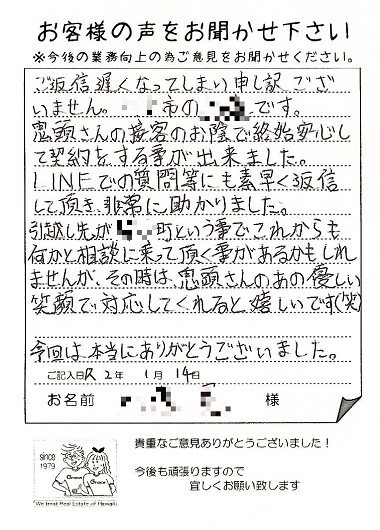 お客様の声をお聞かせ下さい
※今後の業務向上の為ご意見をお聞かせください。
ご返信遅くなってしまい申し訳ござ
いません。 市の です。
鬼頭さんの接客のお陰で終始安心し
て契約をする事が出来ました。
LINEでの質問等にも素早く返信
して頂き、非常に助かりました。
引越し先が 町という事でこれからも
何かと相談に乗って頂く事があるかもしれ
ませんが、その時は、鬼頭さんのあの優しい
笑顔で対応してくれると嬉しいです(笑)
今回は本当にありがとうございました。
ご記入日 R 2年 1月 14日
お名前 様
since
1979
Grace Grace
We treat Real Estate of Hawaii
貴重なご意見ありがとうございました！
今後も頑張りますので
宜しくお願い致します